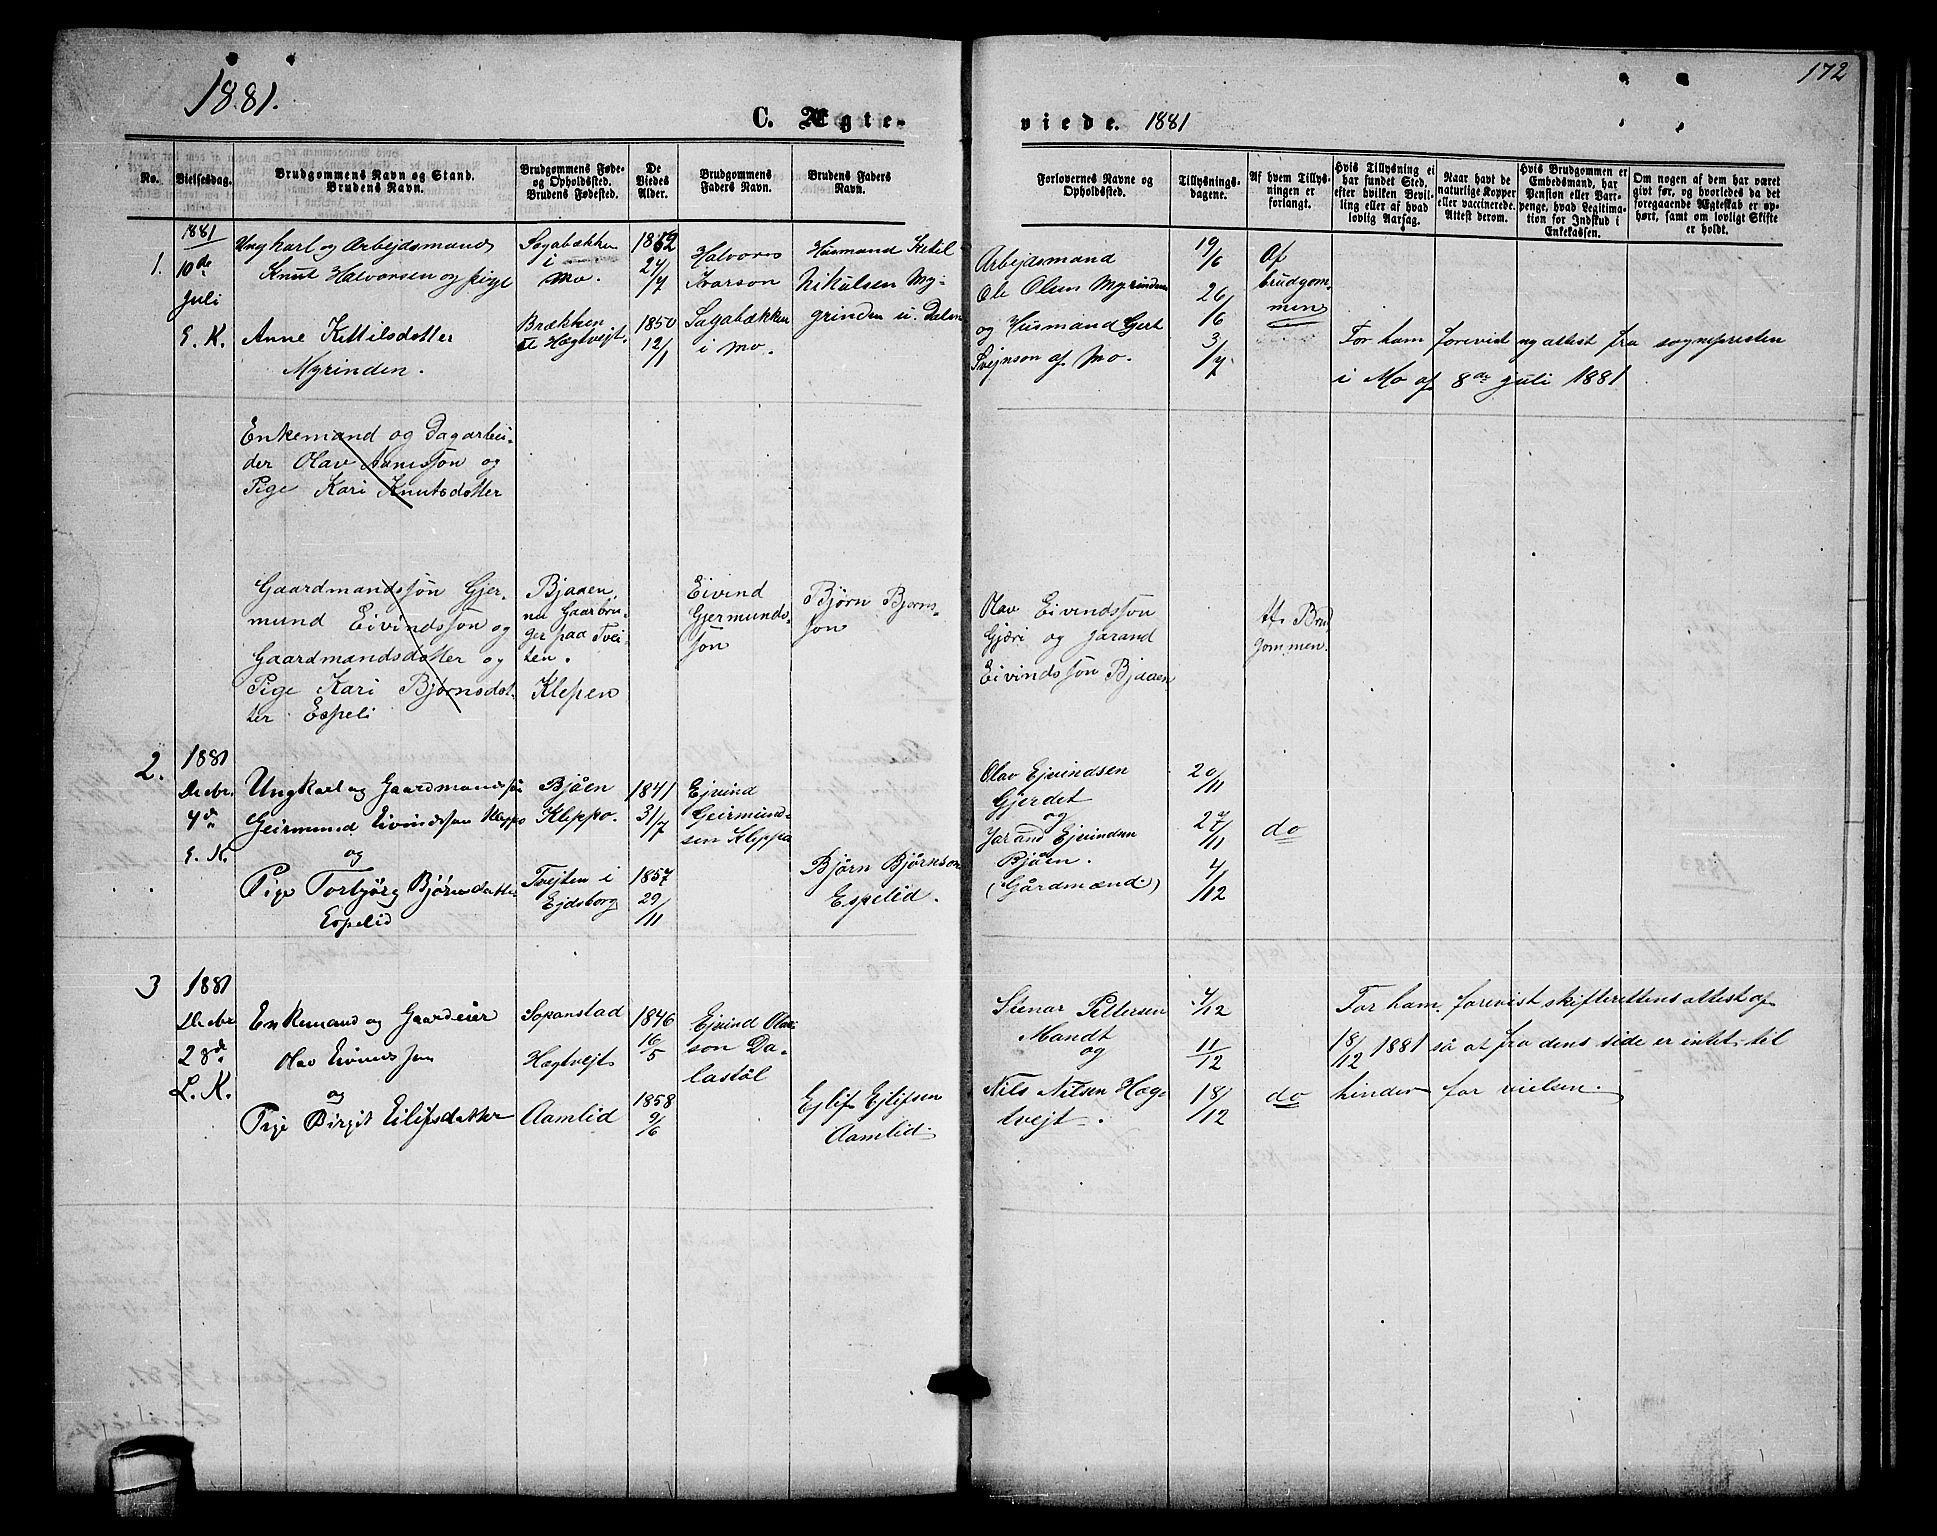 1881.
C. Ægte-
viede. 1881
172
No.
Vielsesdag.
Brudgommens Navn og Stand.
Brudens Navn.
Brudgommens Føde-
og Opholdssted.
Brudens Fødested.
De
Viedes
Alder.
Brudgommens
Faders Navn.
Brudens Faders
Navn.
Forlovernes Navne og
Opholdssted.
Tillysnings-
dagene.
Af hvem Tillys-
ningen er
forlangt.
Hvis Tillysning ei
har fundet Sted,
efter hvilken Bevil-
ling eller af hvad
lovlig Aarsag.
Naar havt de
naturlige Kopper
eller vaccinerede.
Attest derom.
Hvis Brudgommen er
Embedsmand, har
Pension eller Vart-
penge, hvad Legitima-
tion for Indskud i
Enkekassen.
Om nogen af dem har været
givt før, og hvorledes da det
foregaaende Ægteskab er op-
hørt, samt om lovligt Skifte
er holdt.
1.
1881
10de
Juli
E. K.
Ungkarl og Arbejdsmand
Knut Halvorsen og pige
Anne Kittilsdotter
Myrinden.
Sagabækken
i
Mo.
Brækken
Hægtvejt.
1852
24/7
1850
12/1
Halvores
Ivarson
Sagabækken
i Mo.
Husmand Ketil
Nikulsen My-
grinden u. Dalen
Arbejdsmand
Ole Olsen Myrinden
og Husmand Gert
Svejnson af Mo.
19/6
26/6
3/7
Af
brudgom-
men
For ham forevist attest fra sognepresten
i Mo af 8de juli 1881
Enkemand og Dagarbei-
der Olav Aanesson og
Pige Kari Knutsdotter
Gaardmandssøn Gjer-
mund Eivindssøn og
Gaardmandsdotter og
Pige Kari Bjørnsdot-
ter Espeli
Bjaaen,
nu Gaarbru-
ger paa Tvei-
ten.
Klepen
Eivind
Gjermunds-
søn
Bjørn Bjørns-
søn
Olav Eivindssøn
Gjæri og Jarand
Eivindssøn Bjaaen
Af Brud
gommen.
2.
1881
Decbr.
4de
E. K.
Ungkarl og Gaardmandssøn
Geirmund Eivindssøn Kleppo
og
Pige Torbjørg Bjørnsdatter
Espelid
Bjåen
Kleppo.
Tvejten i
Ejdsborg
1841
31/7
1857
29/11
Ejvind
Geirmund-
sen Kleppo
Bjørn Bjørnson
Espelid.
Olav Ejvindsen
Gjerdet
og
Jarand Ejvindsen
Bjåen.
(Gårdmænd)
20/11
27/11
4/12
do
3
1881
Decbr
28de
L. K.
Enkemand og Gaardeier
Olav Eivindssøn
og
Pige Birgit Eilifsdatter
Sopanstad
Hægtvejt
Aamlid
1846
16/5
1858
9/6
Ejvind Olav-
son Da-
lastøl
Ejlif Ejlifsen
Aamlid.
Stenar Pettersen
Mandt
og
Nils Nilsen Hæg-
tvejt.
4/12
11/12
18/12
do
For ham forevist skifterettens attest af
18/12 1881 så at fra dens side er intet til
hinder for vielsen.